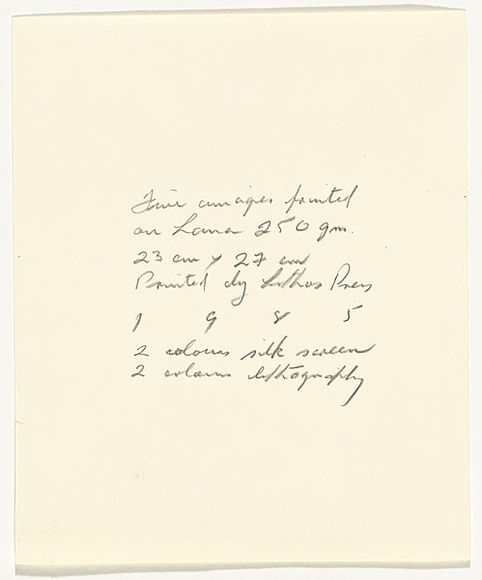 Five images printed
on Lana 250 gm.
23 cm x 27 cm
Printed by Lithos Press
1 9 8 5
2 colours silk screen
2 colours lithography